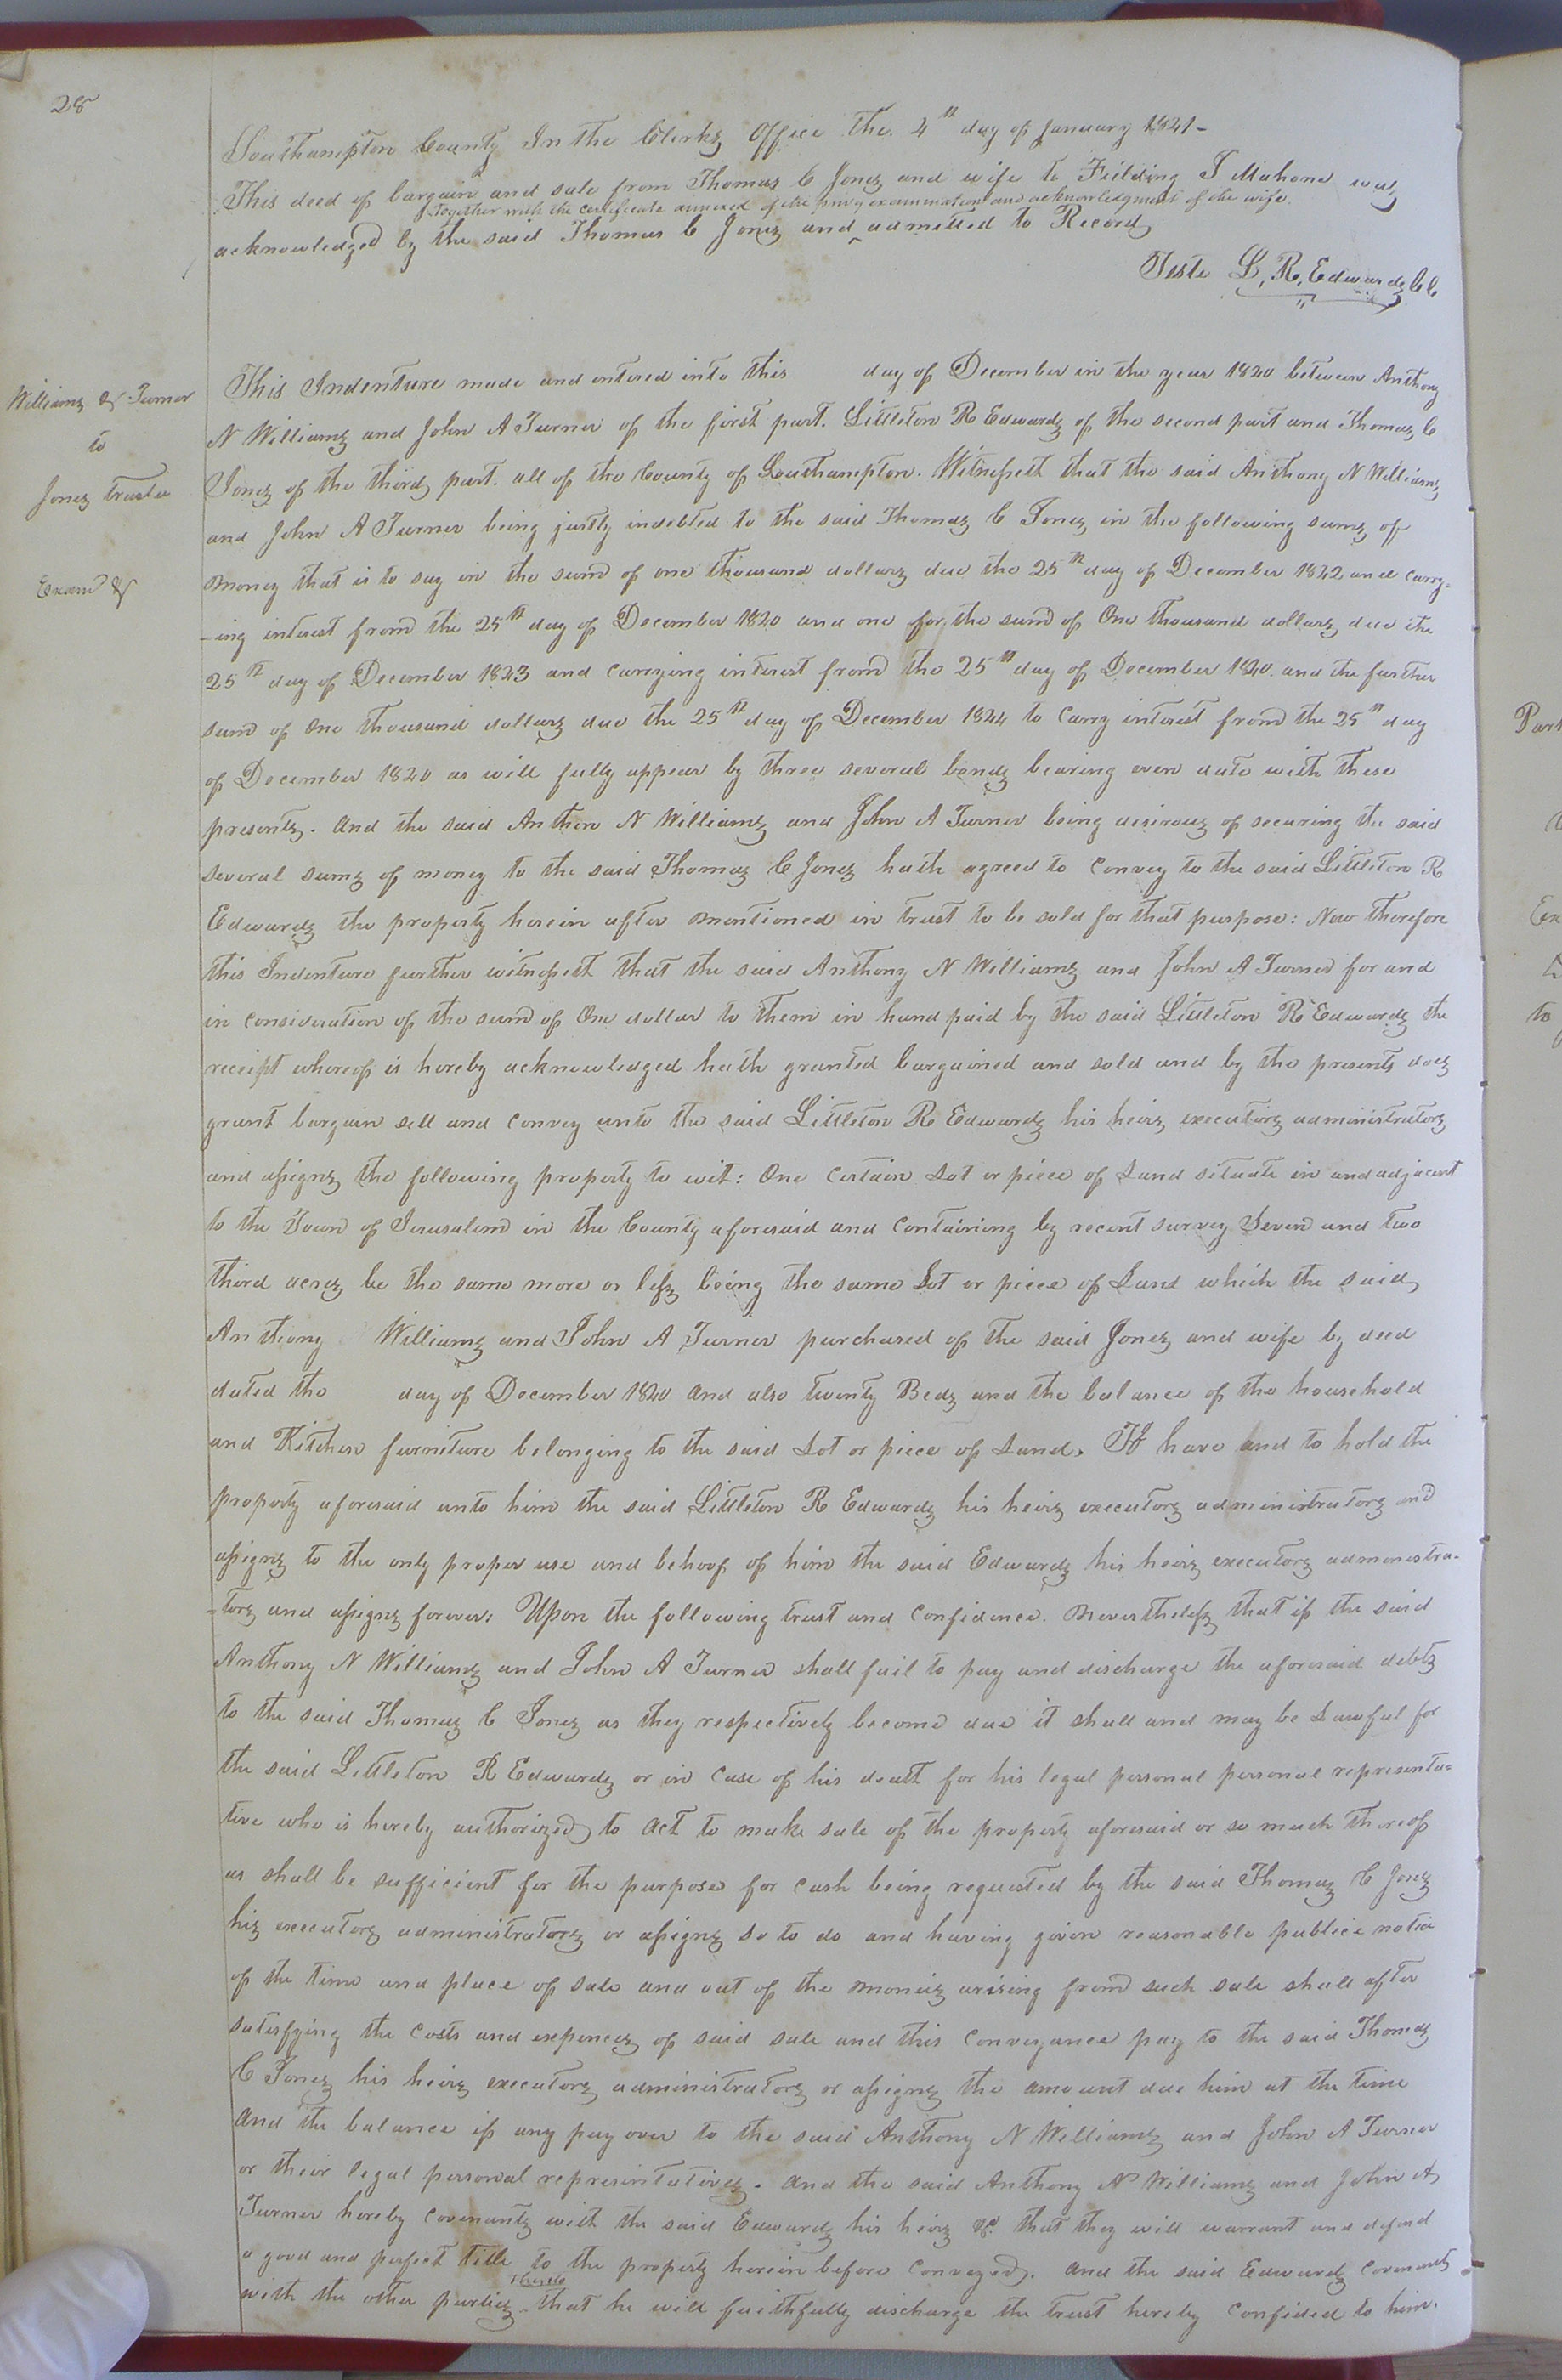 28
Southampton County In the Clerks Office the 4th day of January 1841-
This deed of bargain and sale from Thomas C Jones and wife to Fielding J Mahone was
together with the certificate annexed of the privy examination and acknowledgment of the wife
acknowledged by the said Thomas C Jones and ‸ admitted to Record
Teste L, R, Edwards CC
Williams & Turner
to
Jones trustee
Examd &
This Indenture made and entered into this day of December in the year 1840 between Anthony
N Williams and John A Turner of the first part. Littleton R Edwards of the second part and Thomas C
Jones of the third part. all of the County of Southampton. Witnesseth that the said Anthony N Williams
and John A Turner being justly indebted to the said Thomas C Jones in the following sums of
money that is to say in the sum of one thousand dollars due the 25th day of December 1842 and carry-
-ing interest from the 25th day of December 1840 and one for the sum of One thousand dollars due the
25th day of December 1843 and carrying interest from the 25th day of December 1840. and the further
sum of One thousand dollars due the 25th day of December 1844 to carry interest from the 25th day
of December 1840 as will fully appear by three several bonds bearing even date with these
presents. And the said Anthon N Williams and John A Turner being desirous of securing the said
several sums of money to the said Thomas C Jones hath agreed to convey to the said Littleton R
Edwards the property herein after mentioned in trust to be sold for that purpose: Now therefore
this Indenture further witnesseth that the said Anthony N Williams and John A Turner for and
in consideration of the sum of One dollar to them in hand paid by the said Littleton R Edwards the
receipt whereof is hereby acknowledged hath granted bargained and sold and by the presents does
grant bargain sell and convey unto the said Littleton R Edwards his heirs executors administrators
and assigns the following property to wit: One certain Lot or piece of Land situate in and adjacent
to the Town of Jerusalem in the County aforesaid and containing by recent survey Seven and two
third acres be the same more or less being the same Lot or piece of Land which the said
Anthony Williams and John A Turner purchased of the said Jones and wife by deed
dated the day of December 1840 and also twenty Beds and the balance of the household
and Kitchen furniture belonging to the said Lot or piece of Land. To have and to hold the
property aforesaid unto him the said Littleton R Edwards his heirs executors administrators and
assigns to the only proper use and behoof of him the said Edwards his heirs executors administra-
-tors and assigns forever: Upon the following trust and confidence. Nevertheless that if the said
Anthony N Williams and John A Turner shall fail to pay and discharge the aforesaid debts
to the said Thomas C Jones as they respectively become due it shall and may be Lawful for
the said Littleton R Edwards or in case of his death for his legal personal personal representa=
tive who is hereby authorized to act to make sale of the property aforesaid or so much thereof
as shall be sufficient for the purpose for cash being requested by the said Thomas C Jones
his executors administrators or assigns so to do and having given reasonable publice notice
of the time and place of sale and out of the monies arising from such sale shall after
satisfying the costs and expences of said sale and this conveyance pay to the said Thomas
C Jones his heirs executors administrators or assigns the amount due him at the time
and the balance if any pay over to the said Anthony N Williams and John A Turner
or their legal personal representatives. And the said Anthony N Williams and John A
Turner hereby covenants with the said Edwards his heirs &c. that they will warrant and defend
a good and perfect title to the property herein before conveyed. and the said Edwards covenants
with the other parties that he will faithfully discharge the trust hereby confided to him.
Part
to